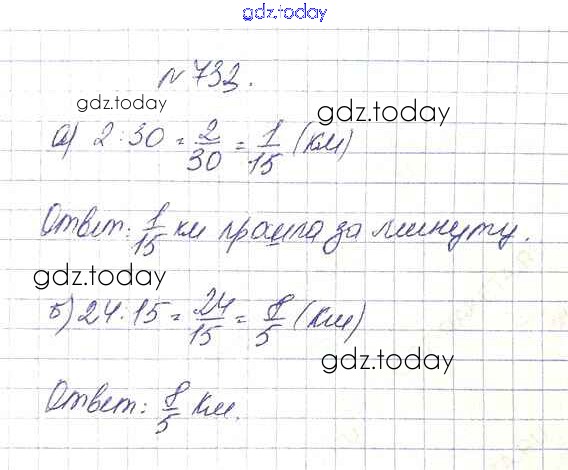 gdz.today
№ 733.
gdz.today
gdz.today
а) 2 : 30 = 2/30 = 1/15 (км)
Ответ: 1/15 км прошла за минуту.
gdz.today
б) 24 : 15 = 24/15 = 8/5 (км)
gdz.today
Ответ: 8/5 км.